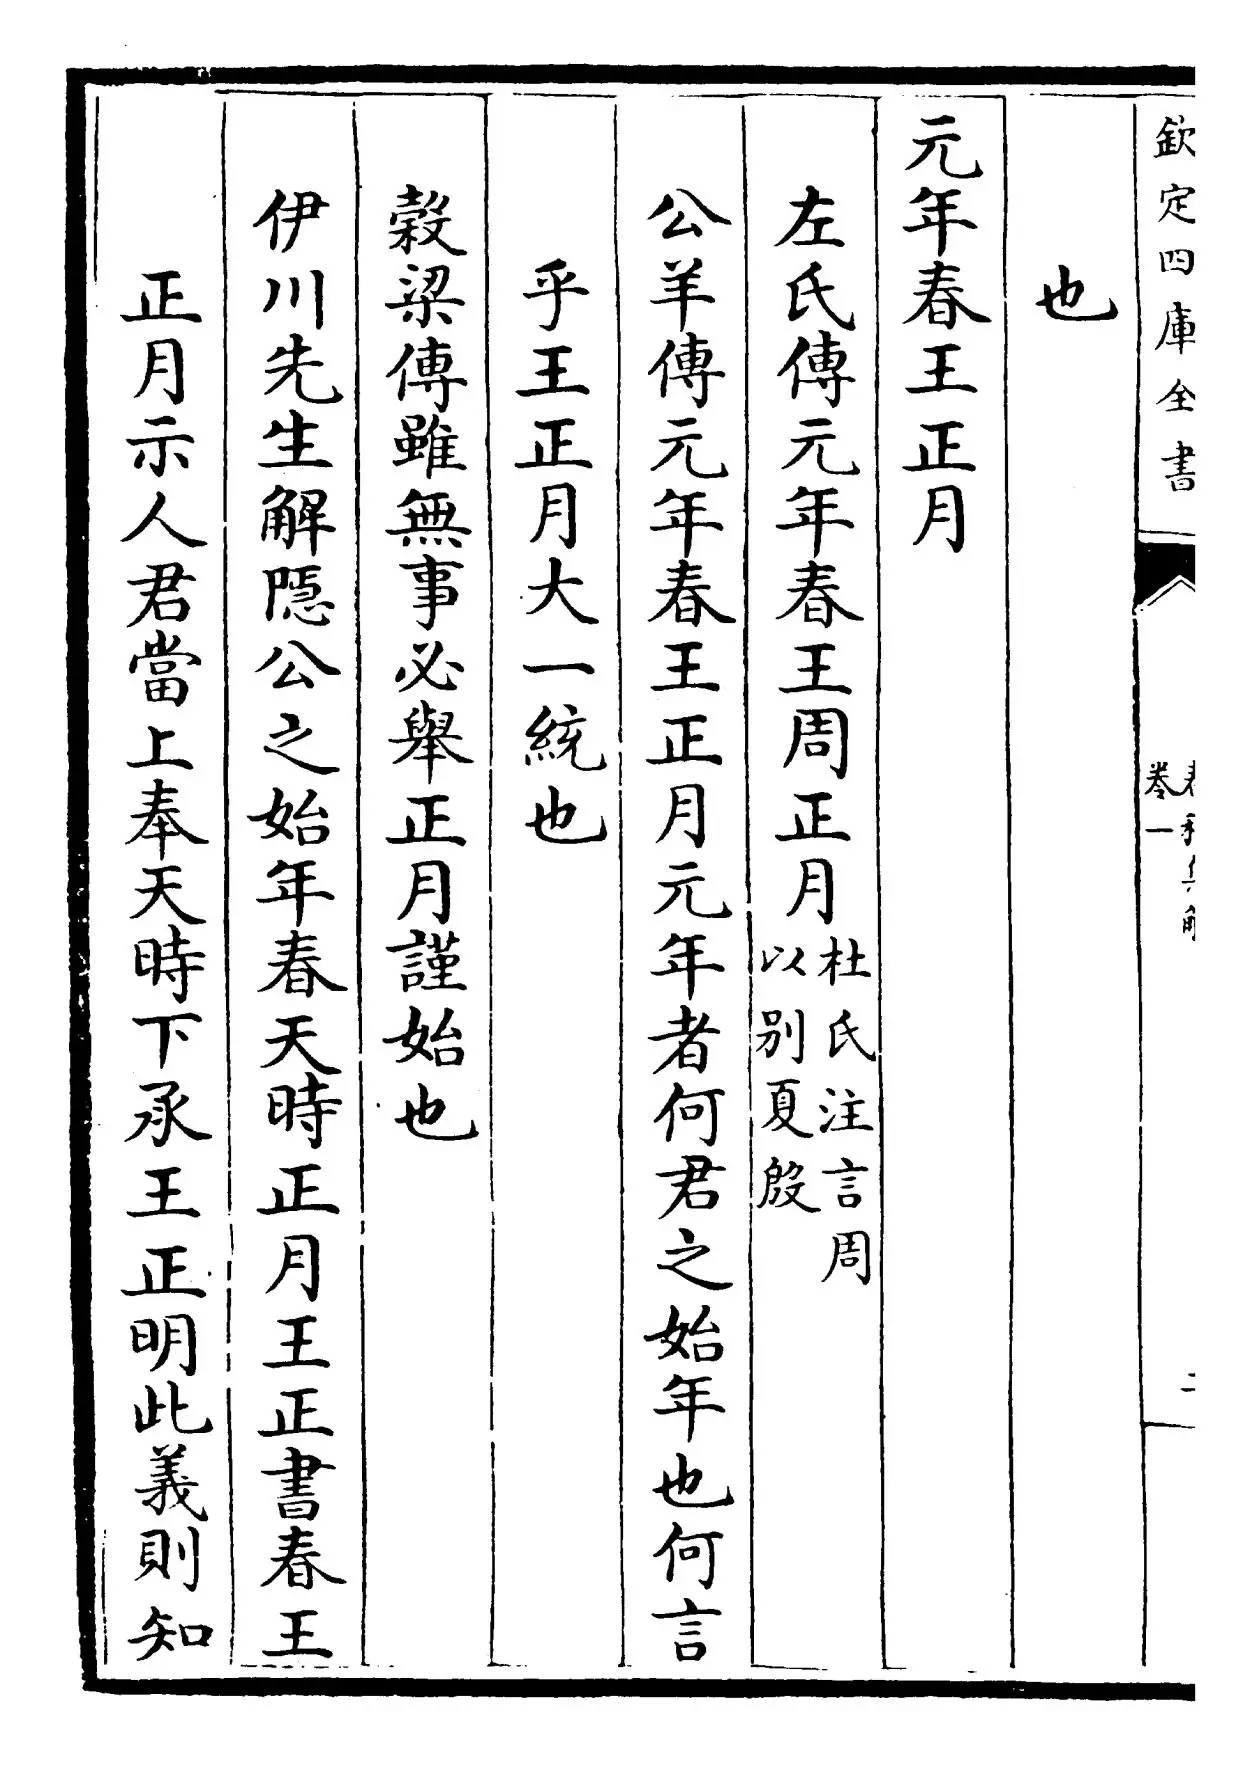 欽定四庫全書
卷一
也
元年春王正月
左氏傳元年春王周正月杜氏注言周
以别夏殷
公羊傳元年春王正月元年者何君之始年也何言
乎王正月大一統也
穀梁傳雖無事必舉正月謹始也
伊川先生解隱公之始年春天時正月王正書春王
正月示人君當上奉天時下承王正明此義則知